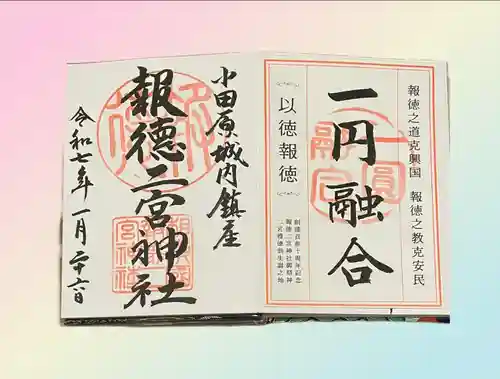 報徳之道克興国　報徳之教克安民
一円融合
以徳報徳
創建百三十周年記念
報徳二宮神社御祭神
二宮尊徳翁生誕之地
小田原城内鎮座
報徳二宮神社
令和七年 一月 二十六日